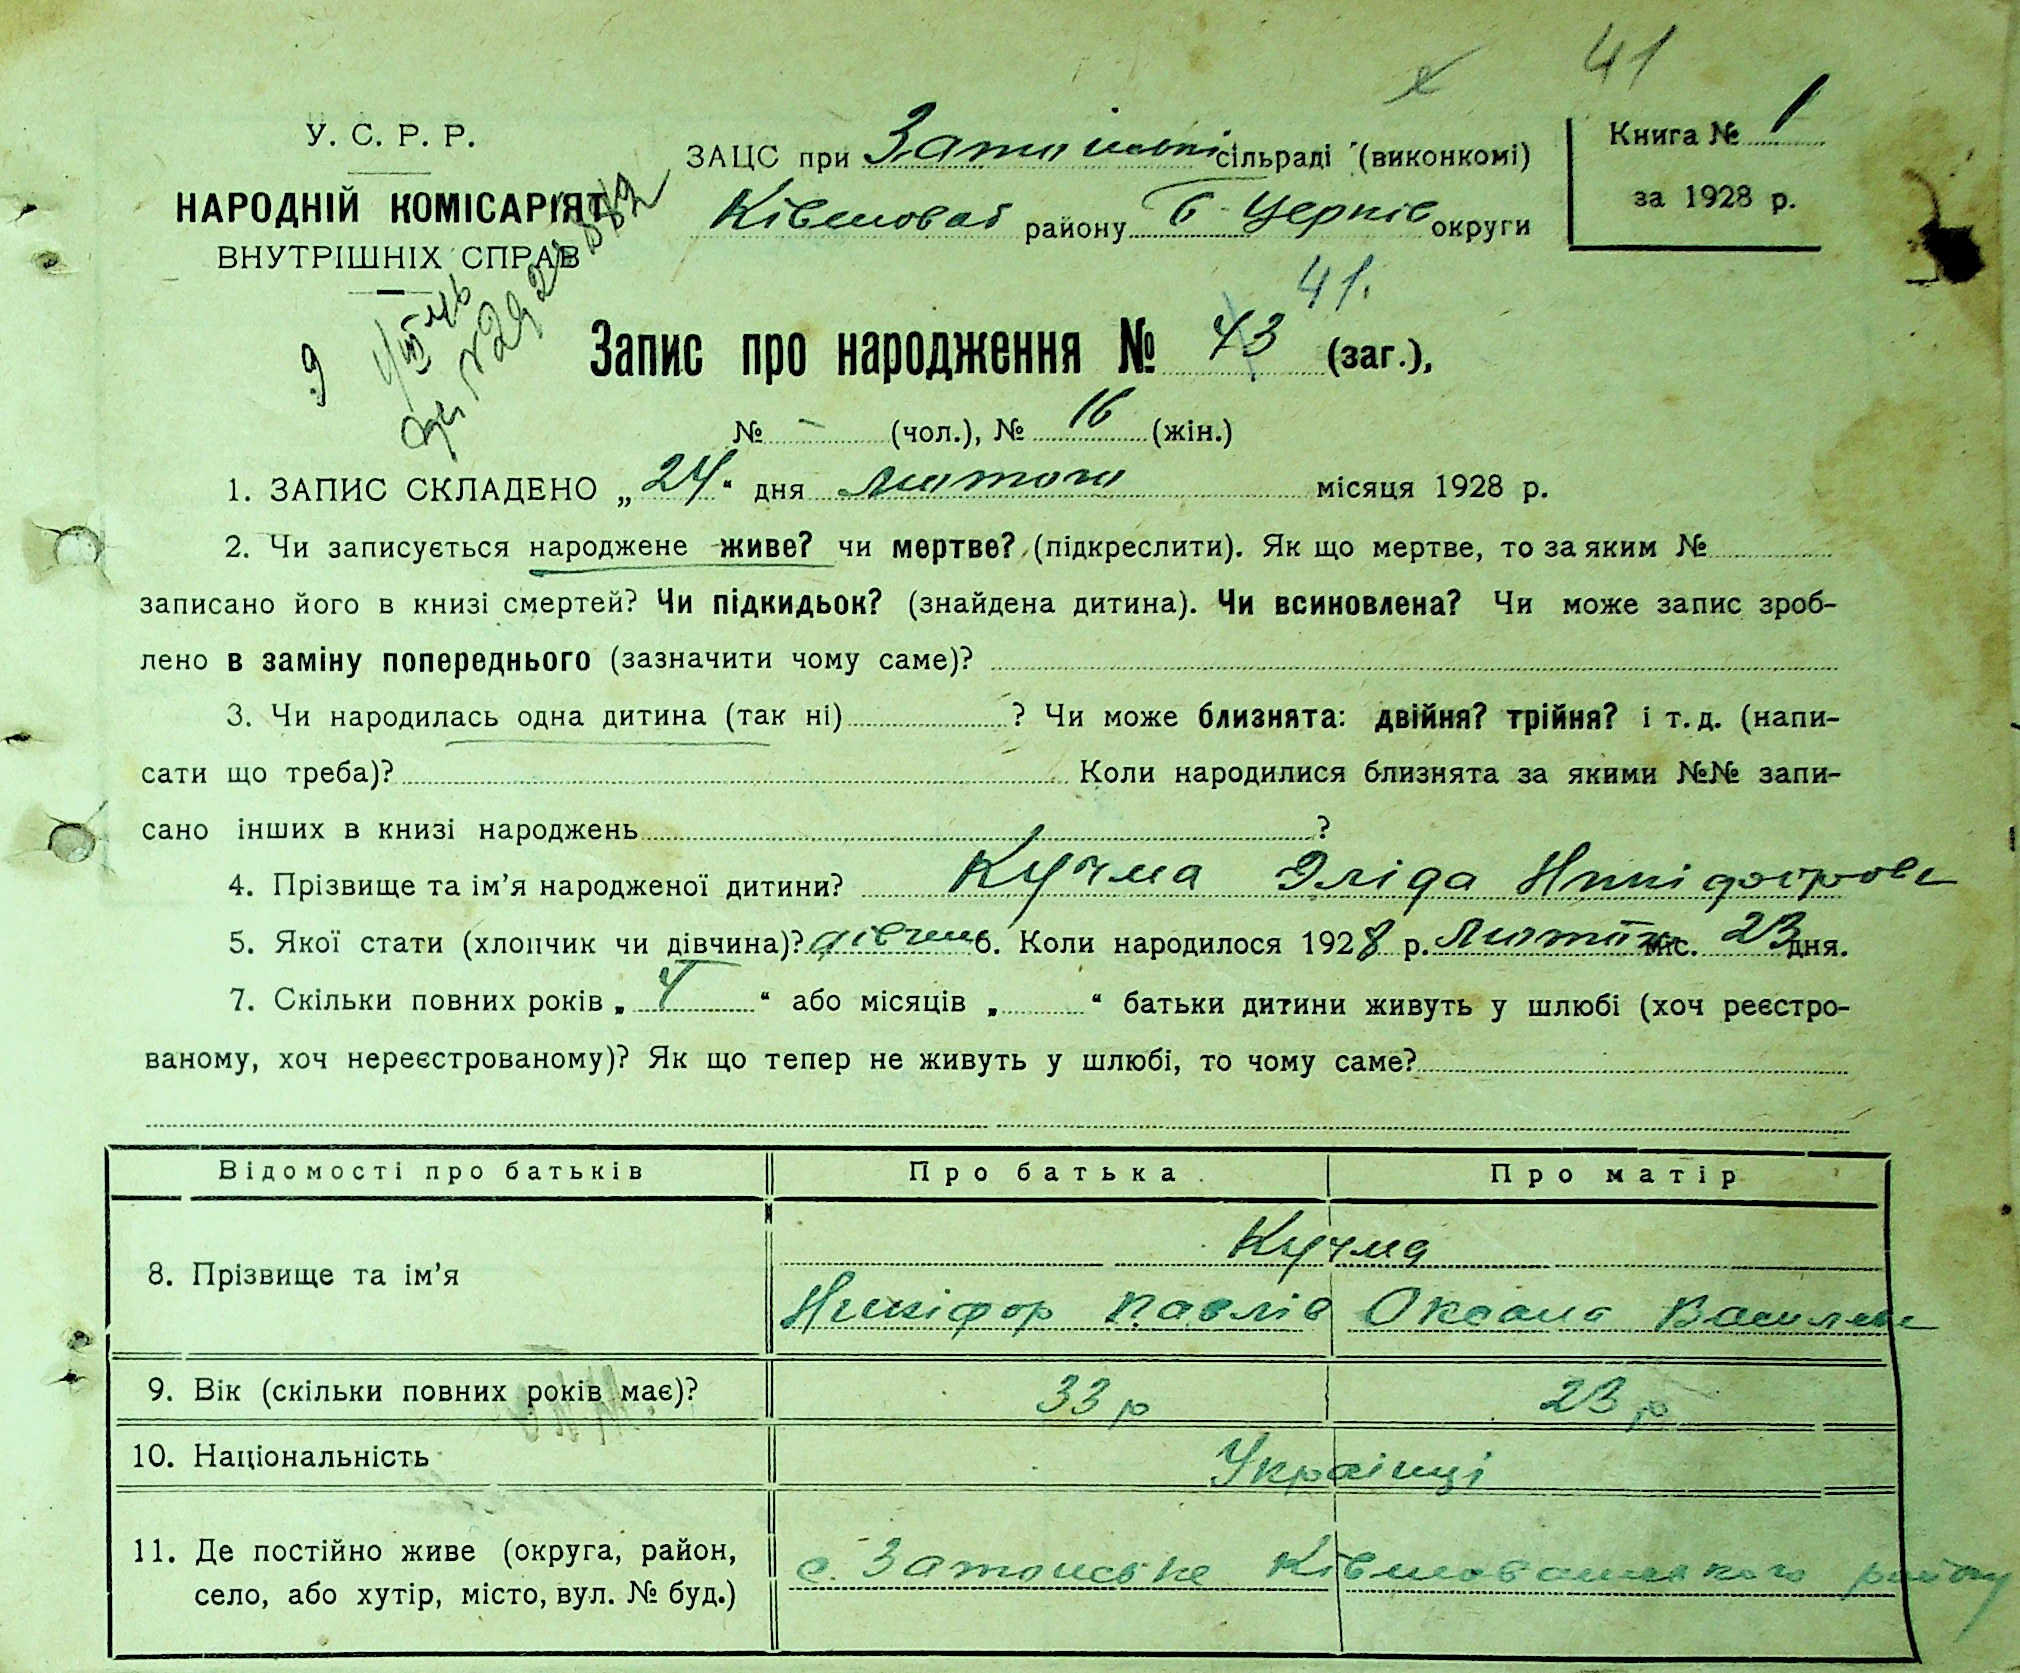 41
У. С. Р. Р.
НАРОДНІЙ КОМІСАРІЯТ
ВНУТРІШНІХ СПРАВ
ЗАЦС при сільраді (виконкомі)
Ківшоват району Б-Церків округи
Книга № 1
за 1928 р.
41.
Запис про народження № 43 (заг.),
№ - (чол.), № 16 (жін.)
1. ЗАПИС СКЛАДЕНО „24“ дня лютого місяця 1928 р.
2. Чи записується народжене живе? чи мертве? (підкреслити). Як що мертве, то за яким №
записано його в книзі смертей? Чи підкидьок? (знайдена дитина). Чи всиновлена? Чи може запис зроб-
лено в заміну попереднього (зазначити чому саме)?
3. Чи народилась одна дитина (так ні) ? Чи може близнята: двійня? трійня? і т. д. (напи-
сати що треба)? Коли народилися близнята за якими №№ запи-
сано інших в книзі народжень ?
4. Прізвище та ім’я народженої дитини? Кучма Эліда Никіфоров
5. Якої стати (хлопчик чи дівчина)? дівчин 6. Коли народилося 1928 р. міс. 23 дня.
7. Скільки повних років „ 4 “ або місяців „ “ батьки дитини живуть у шлюбі (хоч реєстро-
ваному, хоч нереєстрованому)? Як що тепер не живуть у шлюбі, то чому саме?
Відомості про батьків Про батька Про матір
8. Прізвище та ім’я Кучма
Никіфор Павлів Оксана
9. Вік (скільки повних років має)? 33 р 23 р
10. Національність Українці
11. Де постійно живе (округа, район,
село, або хутір, місто, вул. № буд.) с. Затонське району